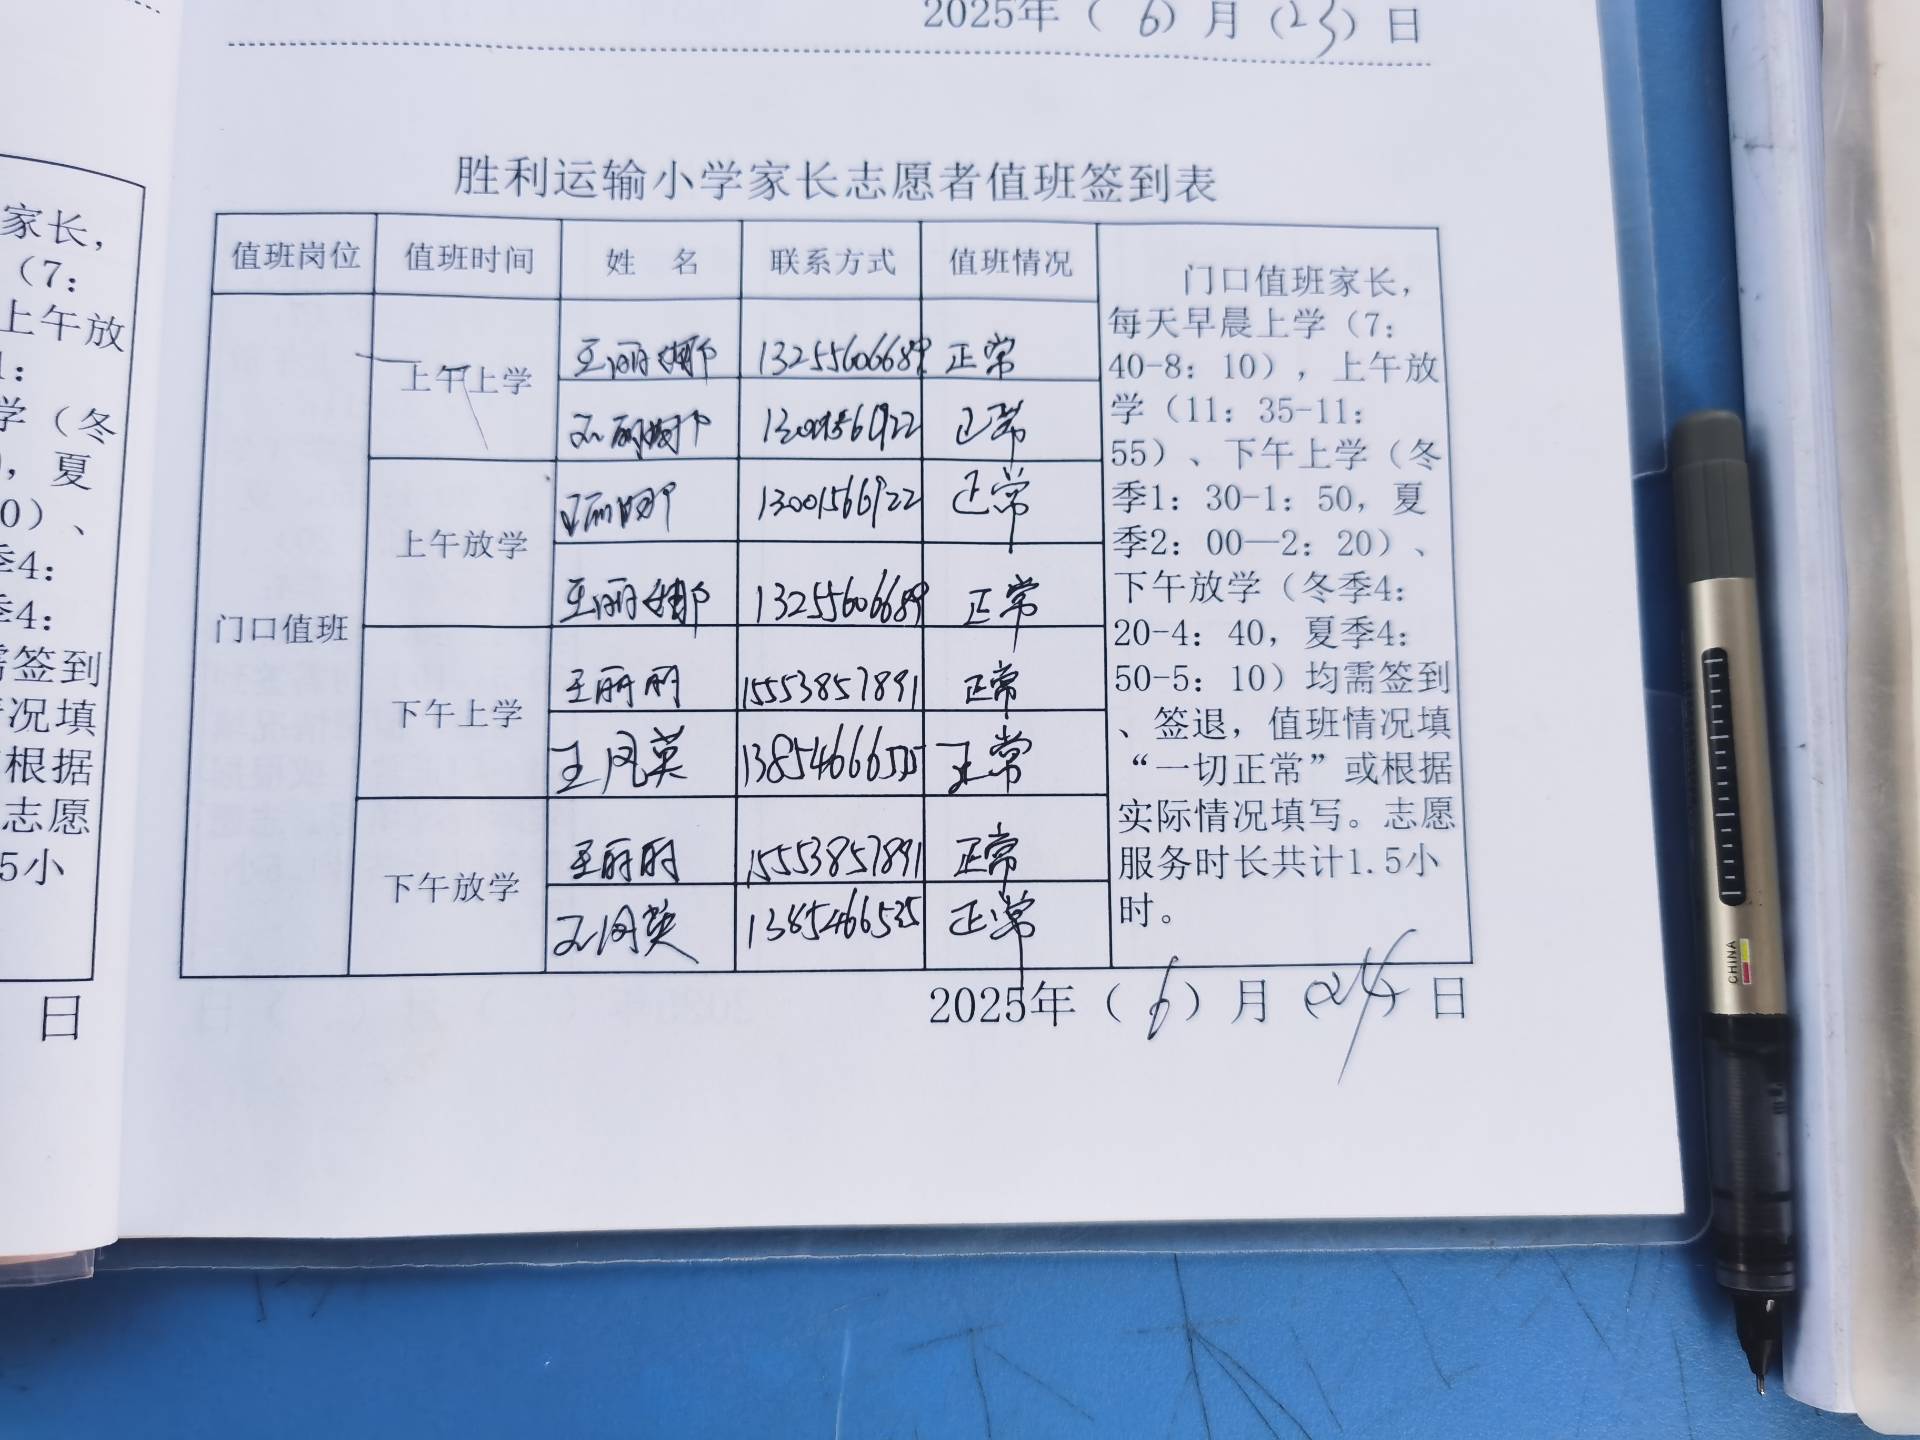 2025年（6）月（23）日
胜利运输小学家长志愿者值班签到表
值班岗位 值班时间 姓 名 联系方式 值班情况
门口值班
上午上学
王丽娜 13255606689 正常
王丽娜 正常
上午放学
王丽娜 13001566922 正常
王丽娜 13255606689 正常
下午上学
王丽丽 15553857891 正常
王凤英 正常
下午放学
王丽丽 15553857891 正常
王凤英 正常
门口值班家长，
每天早晨上学（7：
40-8：10），上午放
学（11：35-11：
55）、下午上学（冬
季1：30-1：50，夏
季2：00—2：20）、
下午放学（冬季4：
20-4：40，夏季4：
50-5：10）均需签到
、签退，值班情况填
“一切正常”或根据
实际情况填写。志愿
服务时长共计1.5小
时。
2025年（6）月（24）日
家长，
（7：
上午放
1：
学（冬
，夏
0）、
季4：
季4：
需签到
情况填
根据
志愿
5小
日
CHINA